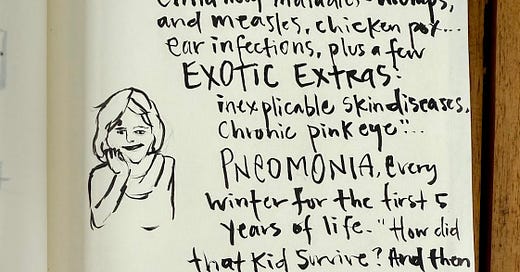 childhood maladies-mumps,
and measles, chicken pox...
ear infections, plus a few
EXOTIC EXTRAS:
inexplicable skin diseases,
Chronic pink eye"...
PNEOMONIA, every
winter for the first 5
years of life. "How did
that kid survive? And then